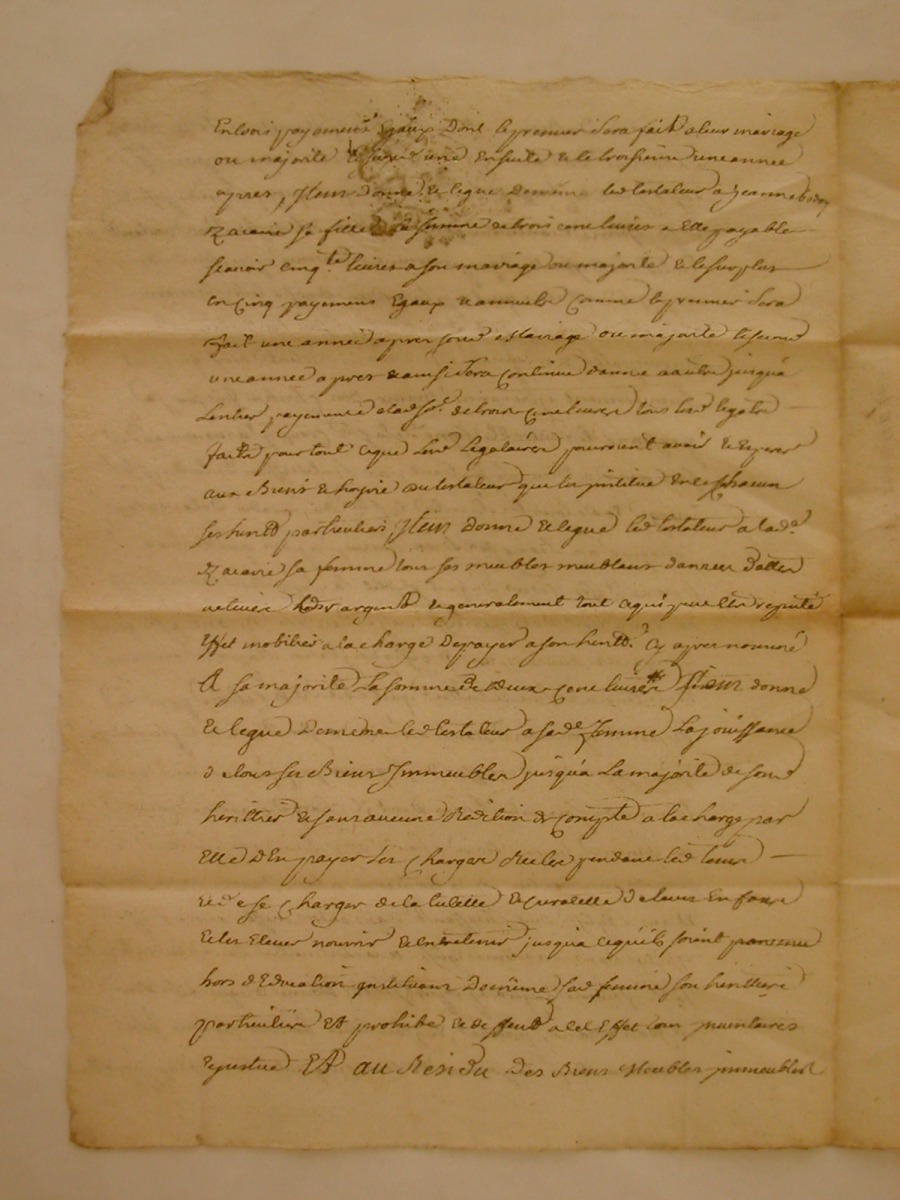 En trois payements Egaux Dont le premier sera fait a leur mariage
ou majorité une Ensuite & le troisieme une année
apres, Item Donne & legue Demême led testateur a Jeanne
Zacarie sa fille La somme de trois cent livres a Elle payable
scavoir cinqte livres a son mariage ou majorité & le surplus
en Cinq payements Egaux & annuels Comme le premier sera
fait une année apres sond Mariage ou majorité le second
une année apres & ainsi sera Continué d'année a autre jusqu'a
L'entier payement de lad so.e de trois cent livres tous lesd legats
faits pour tout ceque Lesd Legataires pourroient avoir & Esperer
aux Biens & hoirie du testateur que les jnstitue
ses herit.rs particuliers Item Donne & legue led testateur a lad.e
Zacarie sa femme tous ses meubles meublans danrées
argent & generalement tout cequi peut Etre reputé
Effet mobilier a la charge De payer a son herit.r Cy apres nommé
A sa majorité La somme De Deux cent livres Item donne
& legue Demême led testateur a sad.e femme La jouissance
de tous ses Biens Immeubles jusqu'a La majorité de son
heritier & sans aucune Redition de Compte a la charge par
Elle D'En payer Les Charges Reeles pendant led tems
& de se Charger de la tutelle & curatelle De leurs Enfans
& les Elever nourrir & entretenir jusqu'a cequ'ils soient parvenus
hors d'Education jnstituant Demême sad femme son heritiere
particuliere Et prohibe & deffend a cet Effet tous jnventaires
Et au Residu Des Biens Meubles jmmeubles